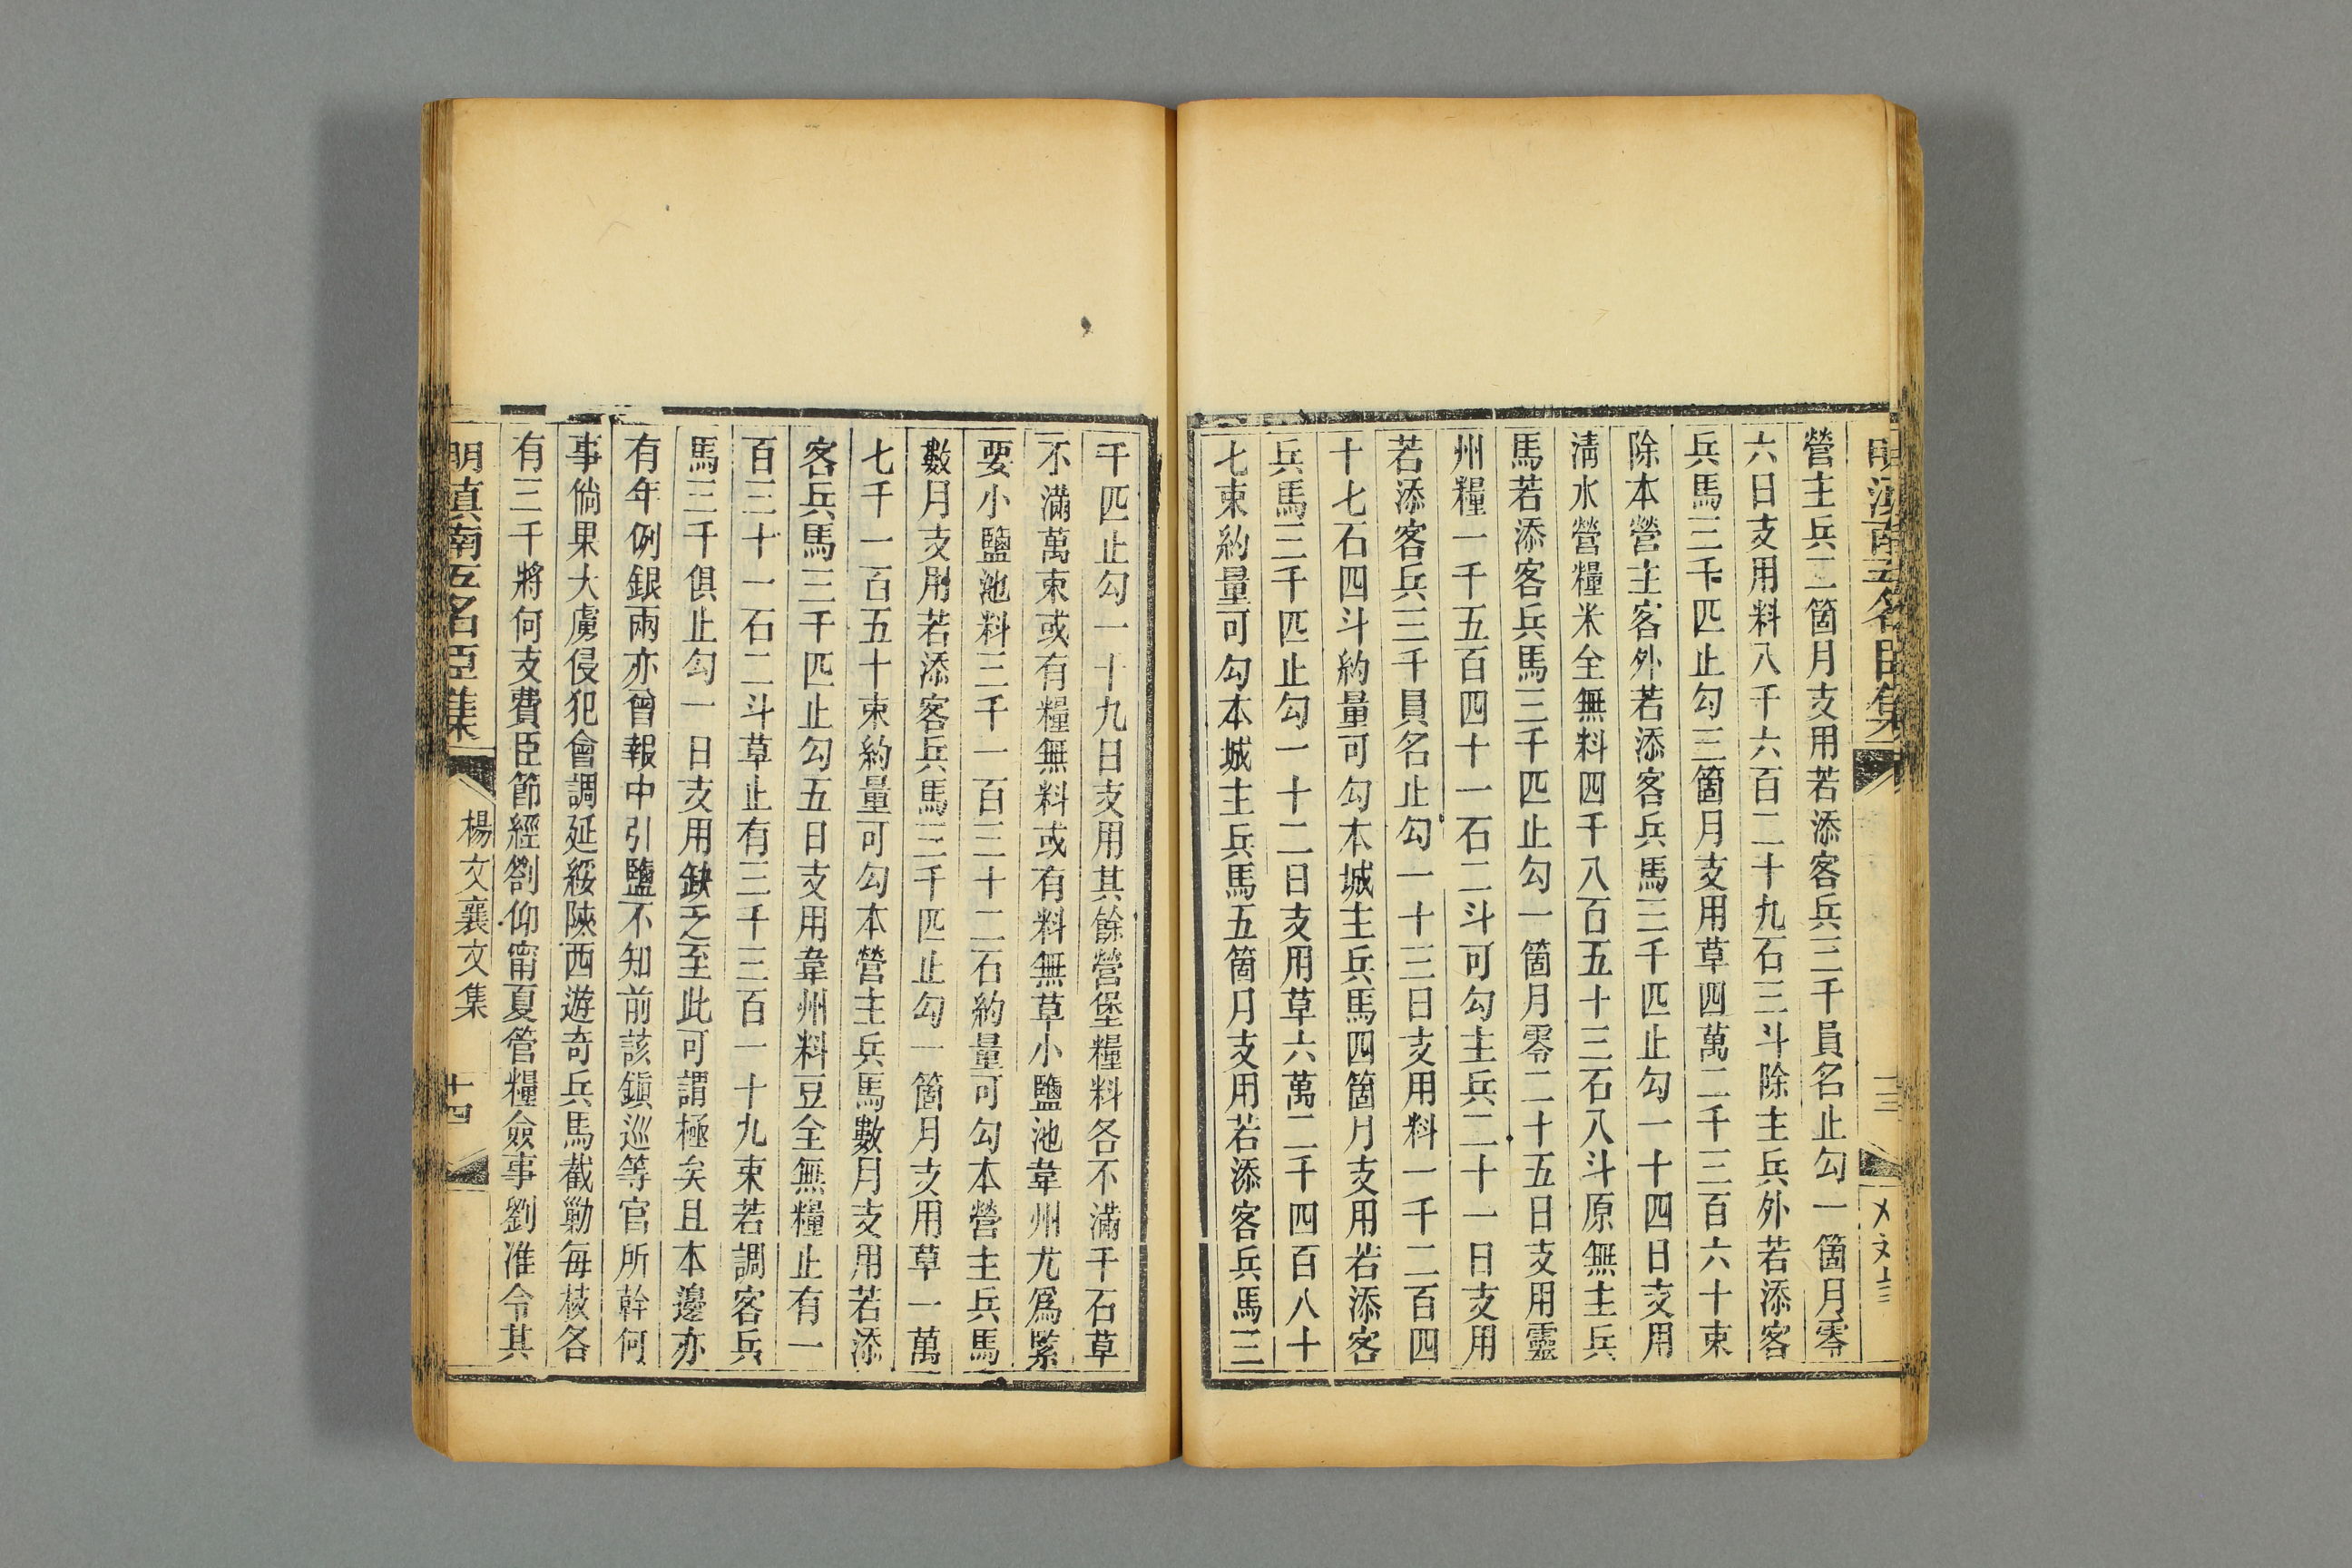 營主兵二箇月支用若添客兵三千員名止勾一箇月零
六日支用料八千六百二十九石三斗除主兵外若添客
兵馬三千匹止勾三箇月支用草四萬二千三百六十束
除本營主客外若添客兵馬三千匹止勾一十四日支用
清水營糧米全無料四千八百五十三石八斗原無主兵
馬若添客兵馬三千匹止勾一箇月零二十五日支用靈
州糧一千五百四十一石二斗可勾主兵二十一日支用
若添客兵三千員名止勾一十三日支用料一千二百四
十七石四斗約量可勾本城主兵馬四箇月支用若添客
兵馬三千匹止勾一十二日支用草六萬二千四百八十
七束約量可勾本城主兵馬五箇月支用若添客兵馬三
千匹止勾一十九日支用其餘營堡糧料各不滿千石草
不滿萬束或有糧無料或有料無草小鹽池韋州尤爲緊
要小鹽池料三千一百三十二石約量可勾本營主兵馬
數月支用若添客兵馬三千匹止勾一箇月支用草一萬
七千一百五十束約量可勾本營主兵馬數月支用若添
客兵馬三千匹止勾五日支用韋州料豆全無糧止有一
百三十一石二斗草止有三千三百一十九束若調客兵
馬三千俱止勾一日支用缺乏至此可謂極矣且本邊亦
有年例銀兩亦曾報中引鹽不知前該鎭巡等官所幹何
事倘果大虜侵犯會調延綏陝西遊奇兵馬截勦每枝各
有三千將何支費臣節經劄仰甯夏管糧僉事劉淮令其
明滇南五名臣集 楊文襄文集 十四